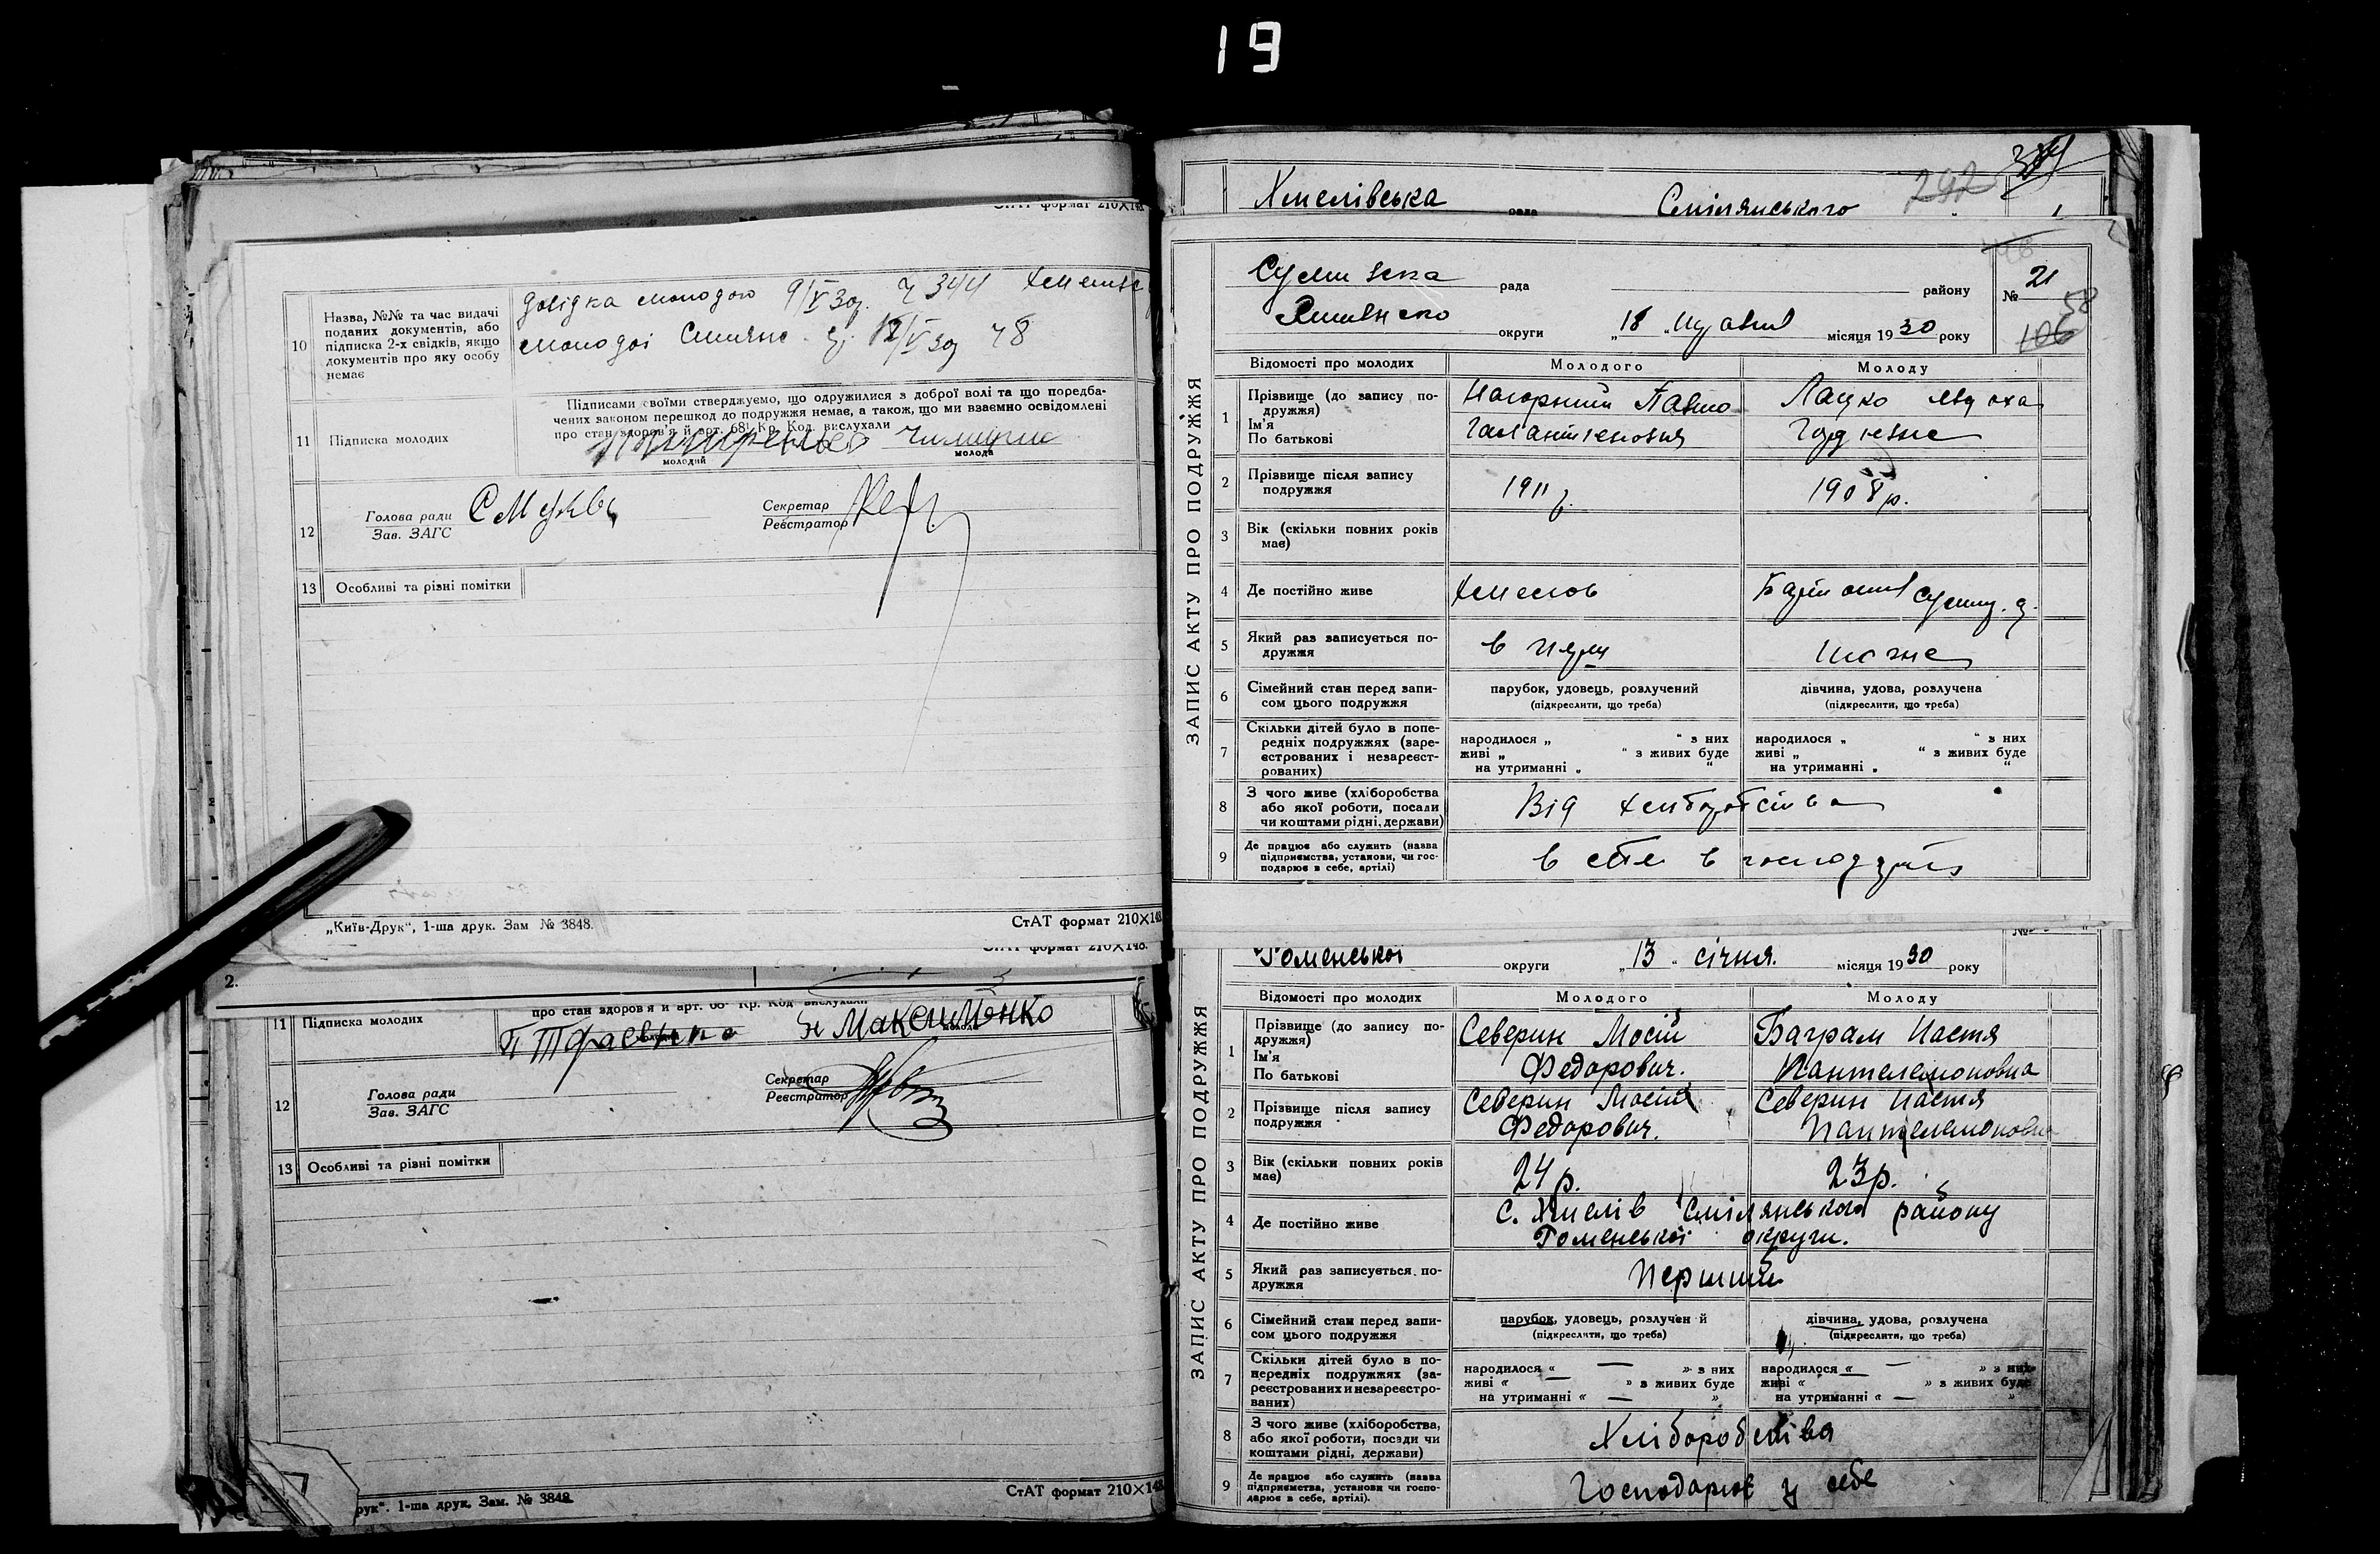 19
СтАТ формат 210×148
10
Назва, №№ та час видачі
поданих документів, або
підписка 2-х свідків, якщо
документів про яку особу
немає
довідка молодого 9/V 30 р. Ч 344
молодої 48
11
Підписка молодих
Підписами своїми стверджуємо, що одружилися з доброї волі та що передба-
чених законом перешкод до подружжя немає, а також, що ми взаємно освідомлені
про стан здоров'я й арт. 681 Кр. Код. вислухали
молодий
молода
12
Голова ради
Зав. ЗАГС
Секретар
Реєстратор
13
Особливі та різні помітки
„Київ-Друк“, 1-ша друк. Зам № 3848.
СтАТ формат 210×148
СтАТ формат 210×148.
2.
про стан здоров'я й арт. 68 Кр. Код вислухали
11
Підписка молодих
Н Максименко
12
Голова ради
Зав. ЗАГС
Секретар
Реєстратор
13
Особливі та різні помітки
рук“. 1-ша друк. Зам. № 3848
СтАТ формат 210×148
Хмелівська
рада
Смілянського
292
ЗАПИС АКТУ ПРО ПОДРУЖЖЯ
рада
району
№ 21
58
106
округи
„18 “
місяця 1930 року
Відомості про молодих
Молодого
Молоду
1
Прізвище (до запису по-
дружжя)
Ім'я
По батькові
Нагорний Павло
Лацко Явдоха
2
Прізвище після запису
подружжя
1911 р.
1908 р.
3
Вік (скільки повних років
має)
4
Де постійно живе
Хмелов
5
Який раз записується по-
дружжя
6
Сімейний стан перед запи-
сом цього подружжя
парубок, удовець, розлучений
(підкреслити, що треба)
дівчина, удова, розлучена
(підкреслити, що треба)
7
Скільки дітей було в попе-
редніх подружжях (заре-
єстрованих і незареєст-
рованих)
народилося „ “ з них
живі „ “ з живих буде
на утриманні „ “
народилося „ “ з них
живі „ “ з живих буде
на утриманні „ “
8
З чого живе (хліборобства
або якої роботи, посади
чи коштами рідні, держави)
Від хліборобства
9
Де працює або служить (назва
підприємства, установи, чи гос-
подарює в себе, артілі)
ЗАПИС АКТУ ПРО ПОДРУЖЖЯ
Роменської
округи
„13“ січня.
місяця 1930 року
Відомості про молодих
Молодого
Молоду
1
Прізвище (до запису по-
дружжя)
Ім'я
По батькові
Северин Мосій
Федорович.
Баграм Настя
Пантелемоновна
2
Прізвище після запису
подружжя
Северин Мосій
Федорович.
Северин Настя
Пантелемоновна
3
Вік (скільки повних років
має)
24 р.
23 р.
4
Де постійно живе
с. Хмелів Смілянського району
Роменської округи.
5
Який раз записується по-
дружжя
Перший
6
Сімейний стан перед запи-
сом цього подружжя
парубок, удовець, розлучен й
(підкреслити, що треба)
дівчина, удова, розлучена
(підкреслити, що треба)
7
Скільки дітей було в по-
передніх подружжях (за-
реєстрованих и незареєстро-
ваних)
народилося « — » з них
живі « — » з живих буде
на утриманні « — »
народилося « — » з них
живі « » з живих буде
на утриманні « — »
8
З чого живе (хліборобства,
або якої роботи, посади чи
коштами рідні, держави)
Хліборобства
9
Де працює або служить (назва
підприємства, установи чи госпо-
дарює в себе, артілі).
Господарює у себе